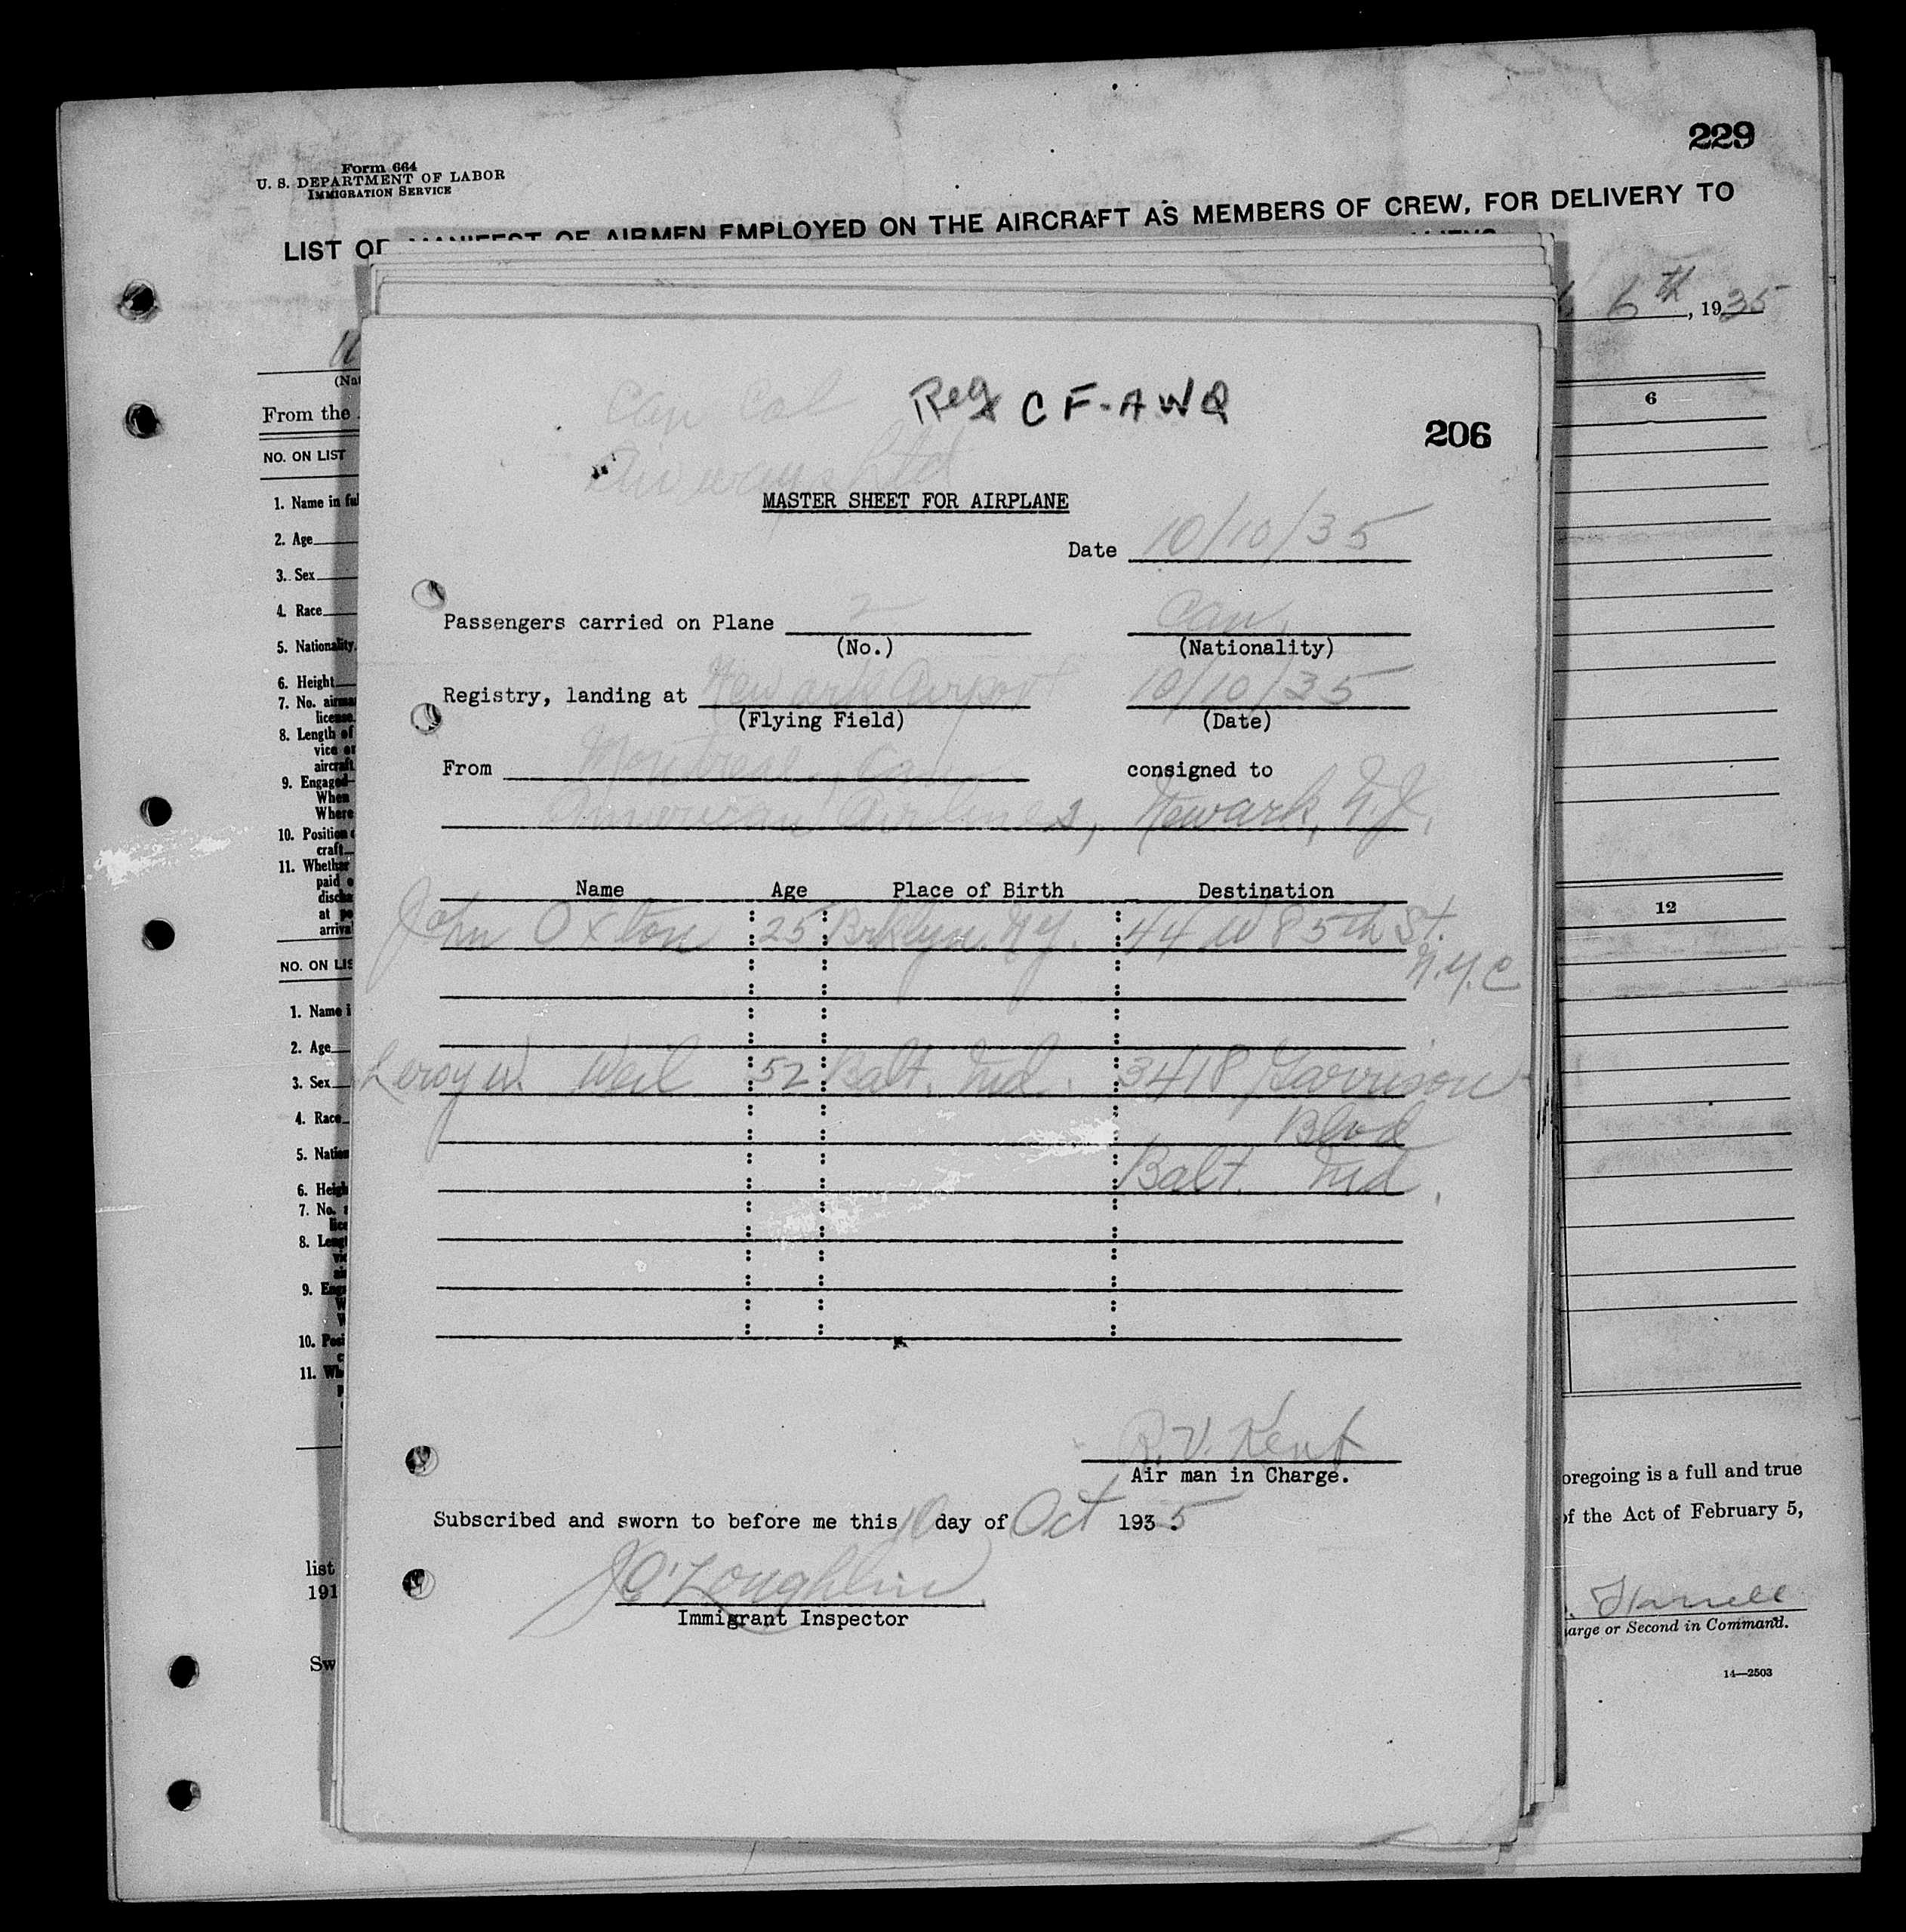 229
Form 664
U. S. DEPARTMENT OF LABOR
IMMIGRATION SERVICE
LIST OR MANIFEST OF AIRMEN EMPLOYED ON THE AIRCRAFT AS MEMBERS OF CREW, FOR DELIVERY TO
6th, 1935
6
From the
NO. ON LIST
1. Name in ful
2. Age
3. Sex
4. Race
5. Nationality
6. Height
7. No. airman
license
8. Length of
vice or
aircraft
9. Engaged
When
Where
10. Position
craft
11. Whether
paid o
disch
at po
arriva
12
NO. ON LIS
1. Name i
2. Age
3. Sex
4. Race
5. Nation
6. Heigh
7. No.
lice
8. Leng
9. Eng
10. Posi
11. Wh
oregoing is a full and true
of the Act of February 5,
list
191
Sw
arge or Second in Command.
14—2503
Can Col Reg CF-AWQ
Airways Ltd
206
MASTER SHEET FOR AIRPLANE
Date 10/10/35
Passengers carried on Plane 2 Can.
(No.) (Nationality)
Registry, landing at Newark Airport 10/10/35
(Flying Field) (Date)
From Montreal, Can consigned to
American Airlines, Newark, N.J.
Name Age Place of Birth Destination
John Oxton 25 Brklyn. NY. 44 W 85th St.
N.Y.C
Leroy W. Weil 52 Balt. Md. 3418 Garrison
Blvd
Balt. Md.
R.V. Kent
Air man in Charge.
Subscribed and sworn to before me this 10 day of Oct 1935.
J O'Loughlin
Immigrant Inspector